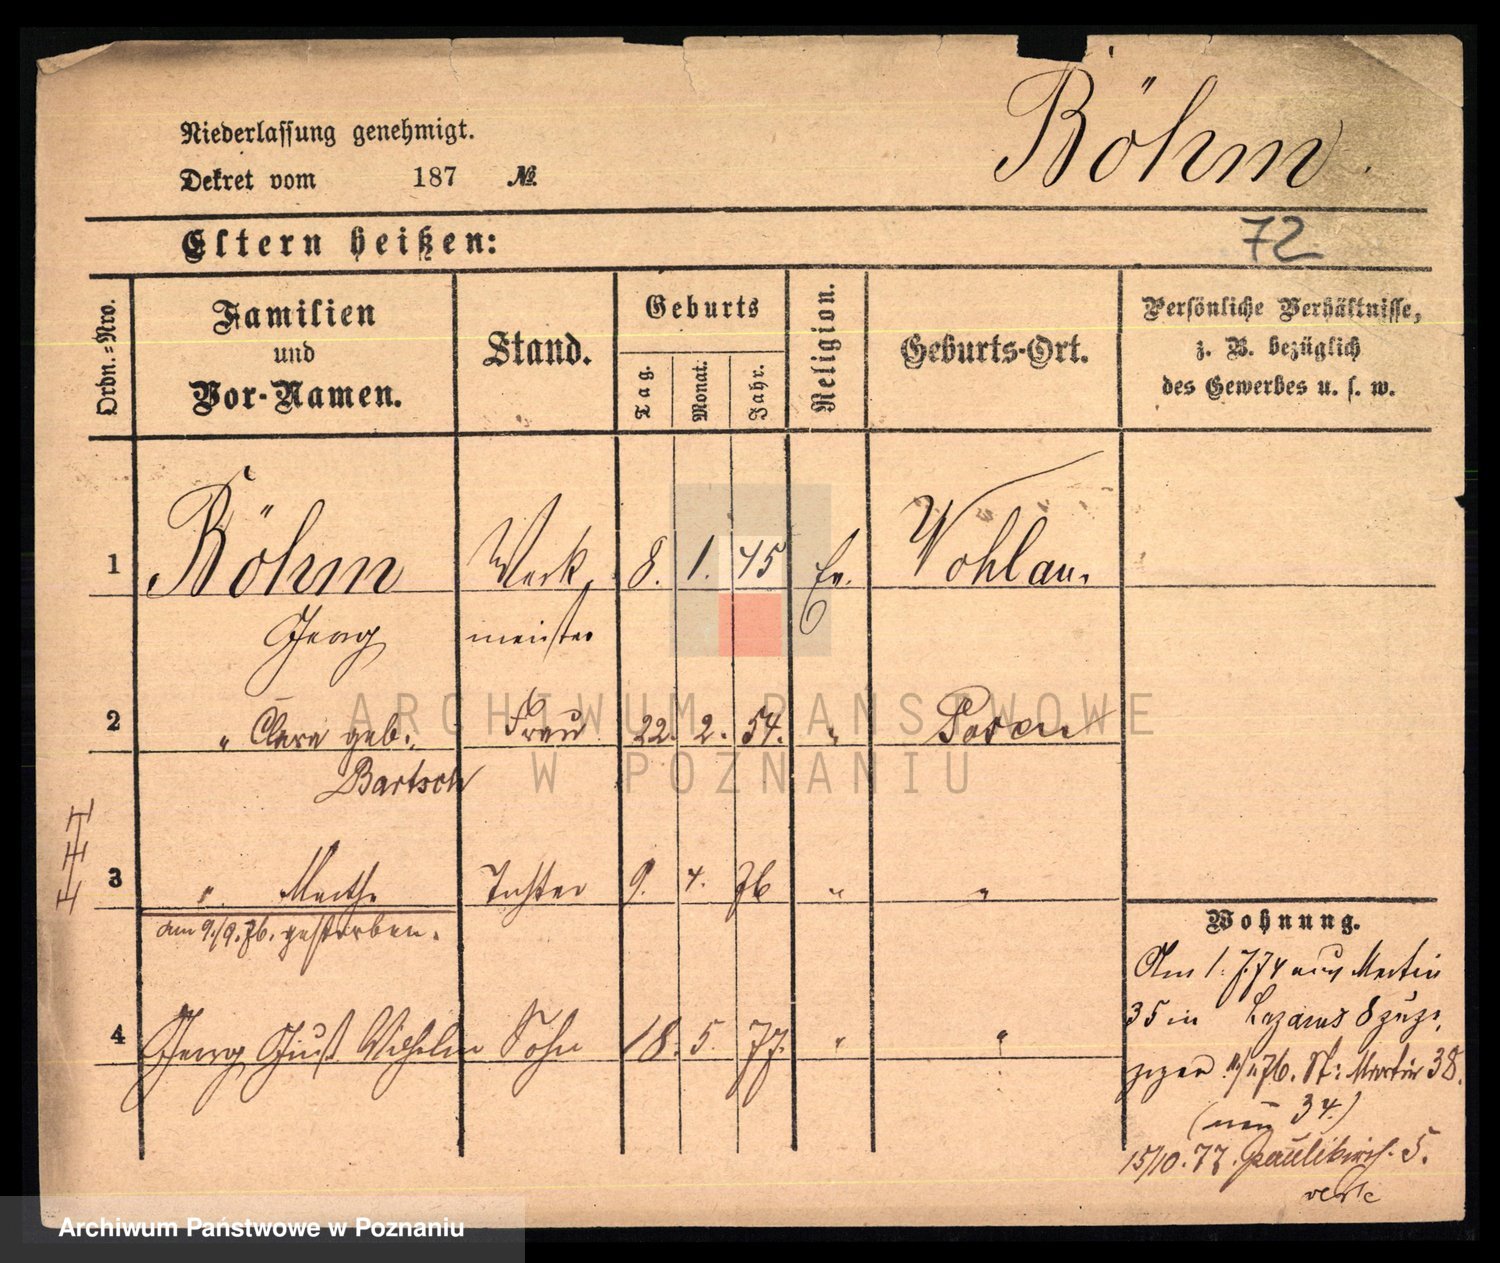 Böhm.
Niederlassung genehmigt.
Dekret vom 187 №
72
Eltern heißen:
Ordn.=Nro.
Familien
und
Vor-Namen.
Stand.
Geburts
Tag.
Monat.
Jahr.
Religion.
Geburts-Ort.
Persönliche Verhältnisse,
z. B. bezüglich
des Gewerbes u. s. w.
1 Böhm Werk 8. 1. 45 Ev. Wohlau.
Georg meister
2 " Clara geb. Frau 22. 2. 54. " Posen
Bartsch
3 " Marthe Tochter 9. 4. 76 " "
am 9/9. 76. gestorben.
4 Georg Wilhelm Sohn 18. 5. 77. " "
Wohnung.
Am 1. 7. 74 aus Martin
35 in Lazarus 8
76. St: Martin 38.
(nun 34.)
15/10. 77. Paulikirch. 5.
ARCHIWUM PAŃSTWOWE
W POZNANIU
Archiwum Państwowe w Poznaniu